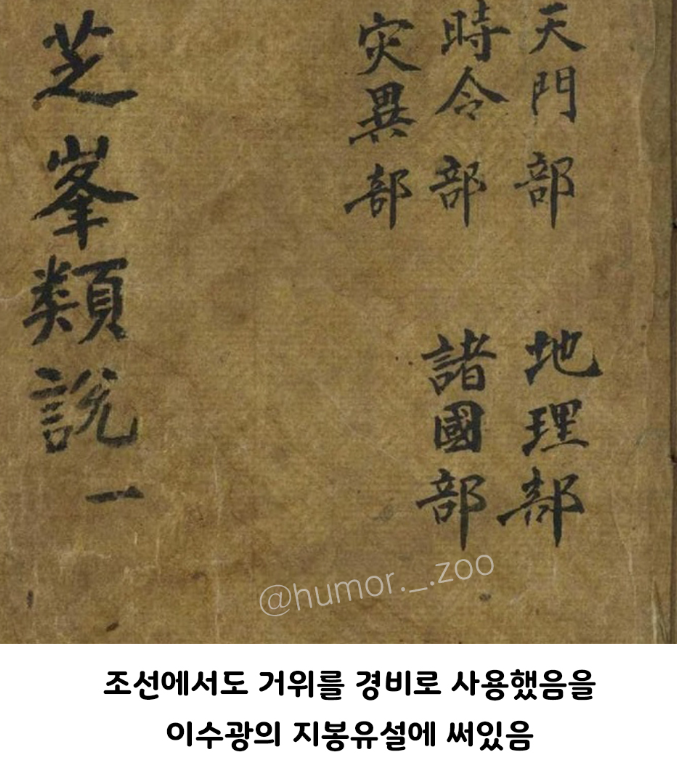 天門部 地理部
時令部 諸國部
灾異部
芝峯類說 一
@humor._.zoo
조선에서도 거위를 경비로 사용했음을
이수광의 지봉유설에 써있음